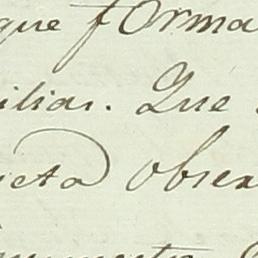 que forma
iliar. Que
icta obser